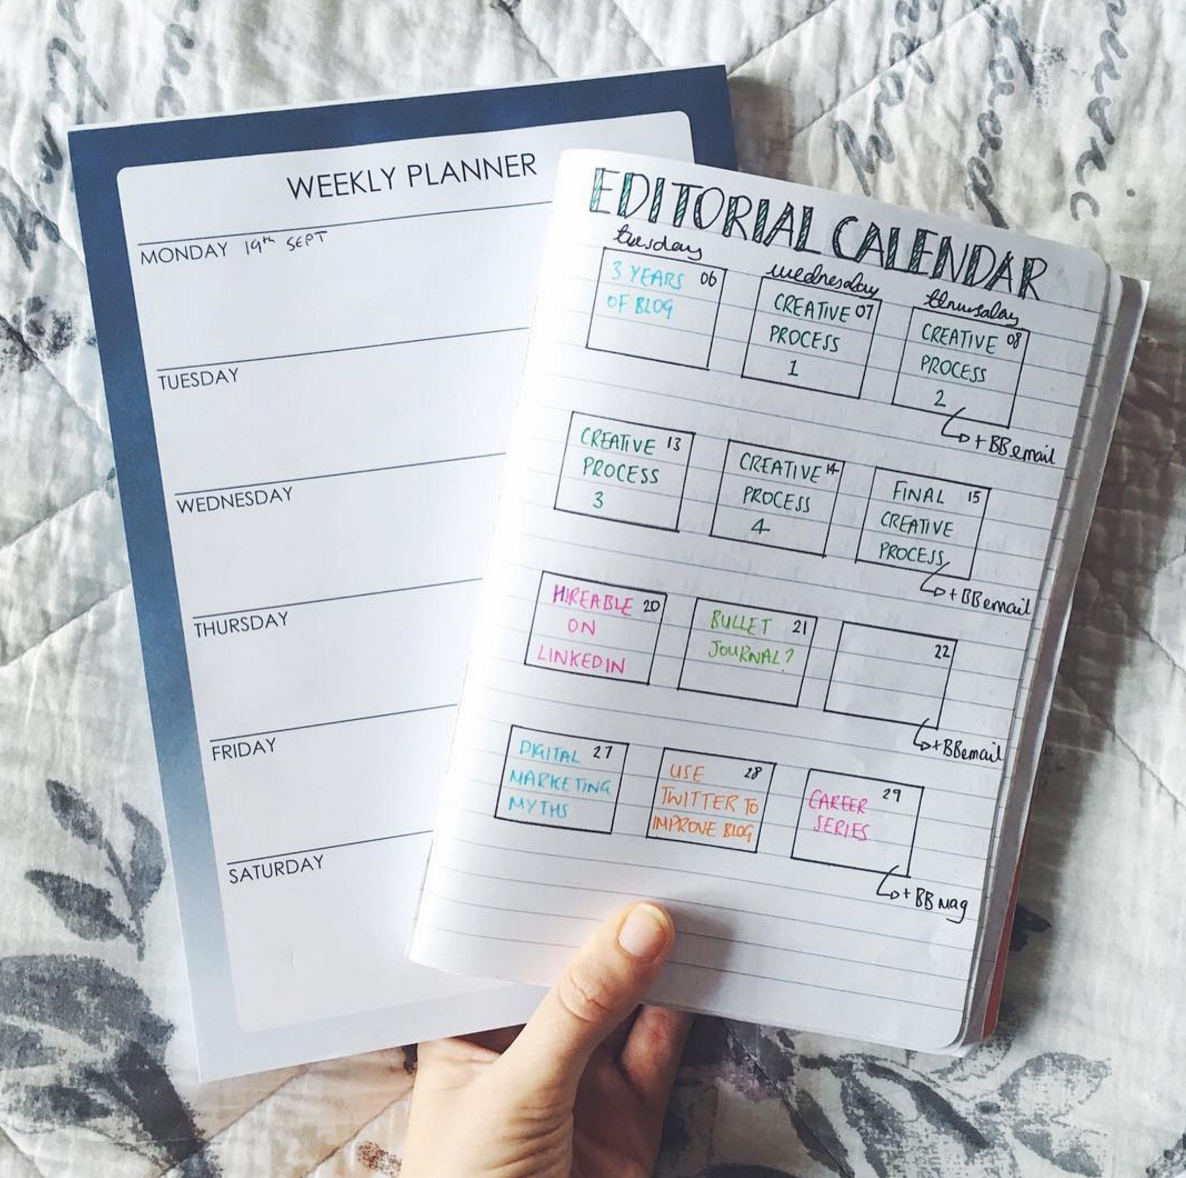 WEEKLY PLANNER
MONDAY 19th SEPT
TUESDAY
WEDNESDAY
THURSDAY
FRIDAY
SATURDAY
EDITORIAL CALENDAR
tuesday
wednesday
thursday
3 YEARS 06
OF BLOG
CREATIVE 07
PROCESS
1
CREATIVE 08
PROCESS
2
+BB email
CREATIVE 13
PROCESS
3
CREATIVE 14
PROCESS
4
FINAL 15
CREATIVE
PROCESS
+BB email
HIREABLE 20
ON
LINKEDIN
BULLET 21
JOURNAL?
22
+BB email
DIGITAL 27
MARKETING
MYTHS
USE 28
TWITTER TO
IMPROVE BLOG
CAREER 29
SERIES
+BB mag